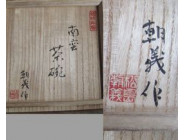 南蛮
茶碗
朝義作
朝義作